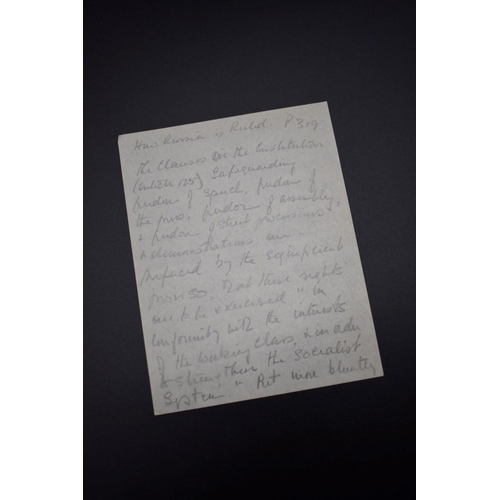 How Russia is Ruled. P 319
The Clauses in the Constitution
(article 125) Safeguarding
freedom of speech, freedom of
the press, freedom of assembly,
+ freedom of street processions
+ demonstrations are
prefaced by the significant
proviso that these rights
are to be exercised "in
conformity with the interests
of the working class, + in order
to strengthen the socialist
System." Put more bluntly